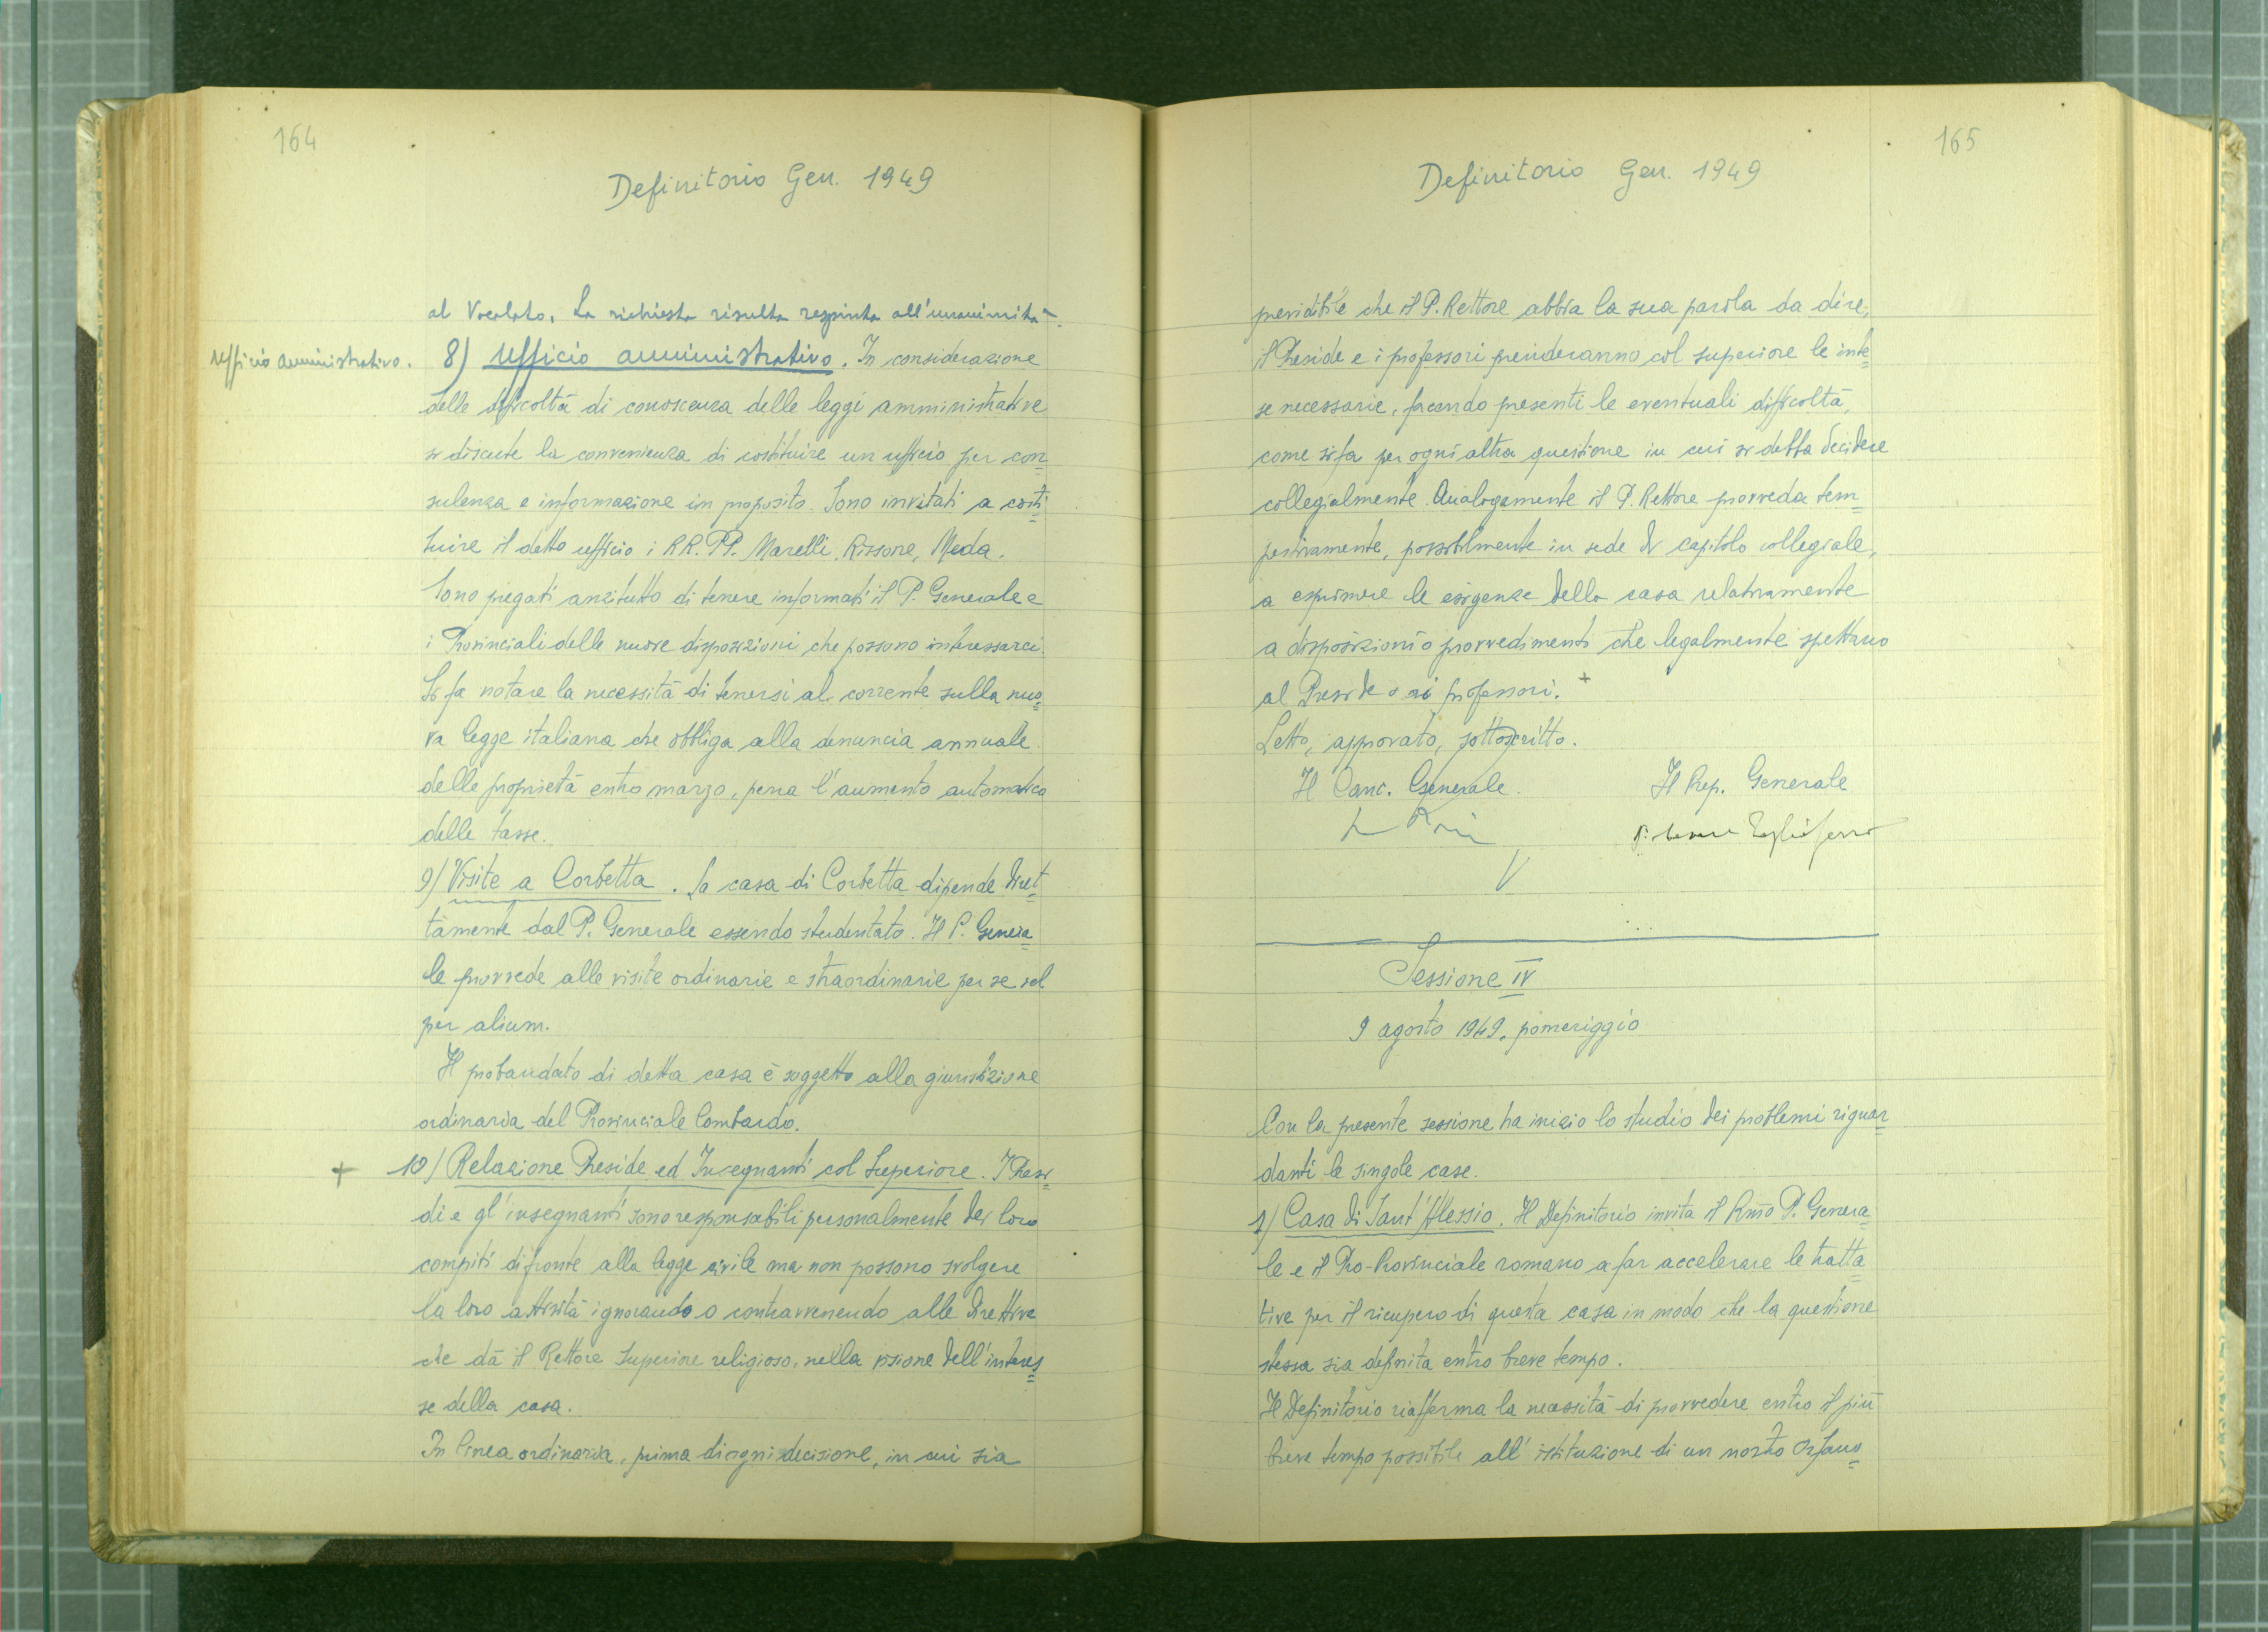 164
Definitorio Gen. 1949
al Vocalato. La richiesta risulta respinta all'unanimità.
Ufficio amministrativo.
8) Ufficio amministrativo. In considerazione
delle difficoltà di conoscenza delle leggi amministrative
si discute la convenienza di costituire un ufficio per con=
sulenza e informazione in proposito. Sono invitati a costi=
tuire il detto ufficio i RR. PP. Marelli, Rissone, Meda.
Sono pregati anzitutto di tenere informati il P. Generale e
i Provinciali delle nuove disposizioni che possono interessarci.
Si fa notare la necessità di tenersi al corrente sulla nuo=
va legge italiana che obbliga alla denuncia annuale
delle proprietà entro marzo, pena l'aumento automatico
delle tasse.
9) Visite a Corbetta. La casa di Corbetta dipende diret=
tamente dal P. Generale essendo studentato. Il P. Genera=
le provvede alle visite ordinarie e straordinarie per se vel
per alium.
Il probandato di detta casa è soggetto alla giurisdizione
ordinaria del Provinciale Lombardo.
+ 10) Relazione Preside ed Insegnanti col Superiore. I Presi=
di e gl'insegnanti sono responsabili personalmente dei loro
compiti di fronte alla legge civile ma non possono svolgere
la loro attività ignorando o contravvenendo alle direttive
che dà il Rettore Superiore religioso, nella visione dell'interes=
se della casa.
In linea ordinaria, prima di ogni decisione, in cui sia
165
Definitorio Gen. 1949
previdibile che il P. Rettore abbia la sua parola da dire,
il Preside e i professori prenderanno col superiore le inte=
se necessarie, facendo presenti le eventuali difficoltà,
come si fa per ogni altra questione in cui si debba decidere
collegialmente. Analogamente il P. Rettore provveda tem=
pestivamente, possibilmente in sede di capitolo collegiale,
a esprimere le esigenze della casa relativamente
a disposizioni o provvedimenti che legalmente spettano
al Preside o ai professori. +
Letto, approvato, sottoscritto.
Il Canc. Generale
Il Prep. Generale
Sessione IV
9 agosto 1949. pomeriggio
Con la presente sessione ha inizio lo studio dei problemi riguar=
danti le singole case.
1) Casa di Sant'Alessio. Il Definitorio invita il Rmo P. Genera=
le e il Pro-Provinciale romano a far accelerare le tratta=
tive per il ricupero di questa casa in modo che la questione
stessa sia definita entro breve tempo.
Il Definitorio riafferma la necessità di provvedere entro il più
breve tempo possibile all'istituzione di un nostro Orfano=